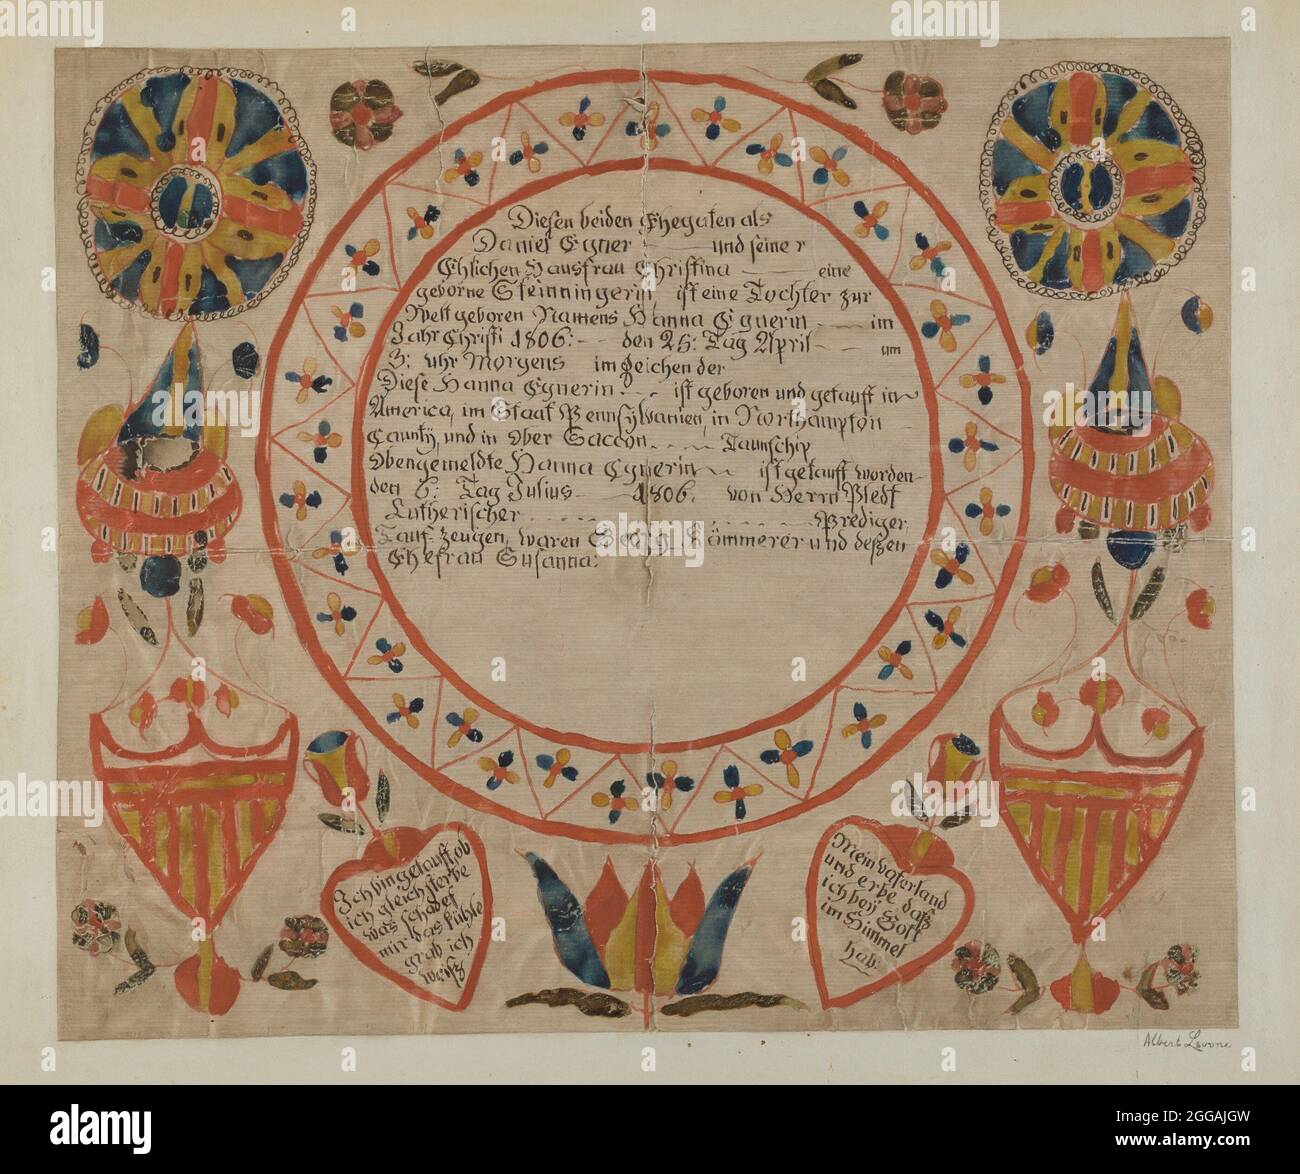 Diesen beiden Ehegaten als
Daniel Egner und seiner
Ehlichen Hausfrau Christina eine
geborne Steinningerin, ist eine Tochter zur
Welt geboren Namens Hanna Egnerin im
Jahr Christi 1806: den 25: Tag April um
3: uhr Morgens im Zeichen der
Diese Hanna Egnerin ist geboren und getauft in
America, im Staat Pennsylvanien, in Northampton
Caunty, und in Ober Saccon Taunschip
Obengemeldte Hanna Egnerin ist getauft worden
den 6: Tag Julius 1806. von Herrn
Lutherischer Prediger,
Tauf zeugen, waren Georg Kämmerer und deßen
Ehefrau Susanna:
Ich bin getauft, ob
ich gleich sterbe
was schadet
mir das kühle
grab ich
weiß
Mein vaterland
und erbe daß
ich beÿ Gott
im Himmel
hab:
Albert Levone
alamy
Image ID: 2GGAJGW
www.alamy.com